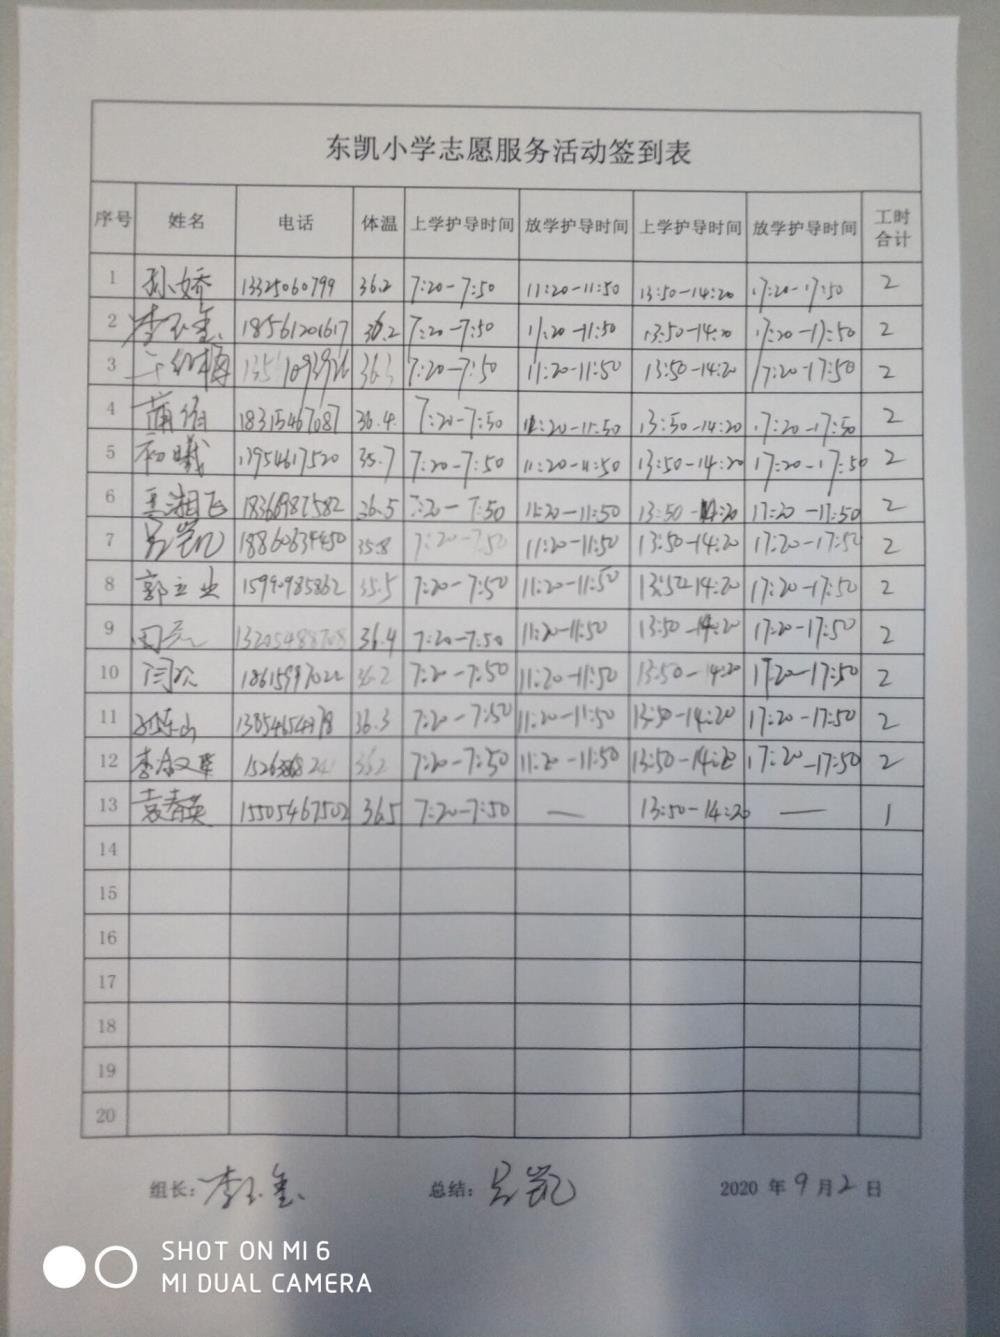 东凯小学志愿服务活动签到表
序号 姓名 电话 体温 上学护导时间 放学护导时间 上学护导时间 放学护导时间 工时合计
1 孙娇 13325060799 36.2 7:20-7:50 11:20-11:50 13:50-14:20 17:20-17:50 2
2 李玉玺 18561201617 36.2 7:20-7:50 11:20-11:50 13:50-14:20 17:20-17:50 2
3 36.3 7:20-7:50 11:20-11:50 13:50-14:20 17:20-17:50 2
4 18315467087 36.4 7:20-7:50 11:20-11:50 13:50-14:20 17:20-17:50 2
5 初曦 17954617520 35.7 7:20-7:50 11:20-11:50 13:50-14:20 17:20-17:50 2
6 18368987582 36.5 7:20-7:50 11:20-11:50 13:50-14:20 17:20-17:50 2
7 吴凯 18860634450 35.8 7:20-7:50 11:20-11:50 13:50-14:20 17:20-17:50 2
8 郭立业 15990985862 35.5 7:20-7:50 11:20-11:50 13:50-14:20 17:20-17:50 2
9 13205488708 36.4 7:20-7:50 11:20-11:50 13:50-14:20 17:20-17:50 2
10 闫欢 18615997022 36.2 7:20-7:50 11:20-11:50 13:50-14:20 17:20-17:50 2
11 13854654378 36.3 7:20-7:50 11:20-11:50 13:50-14:20 17:20-17:50 2
12 7:20-7:50 11:20-11:50 13:50-14:20 17:20-17:50 2
13 袁春英 15505467502 36.5 7:20-7:50 — 13:50-14:20 — 1
14
15
16
17
18
19
20
组长: 李玉玺 总结: 吴凯 2020 年 9 月 2 日
SHOT ON MI 6
MI DUAL CAMERA